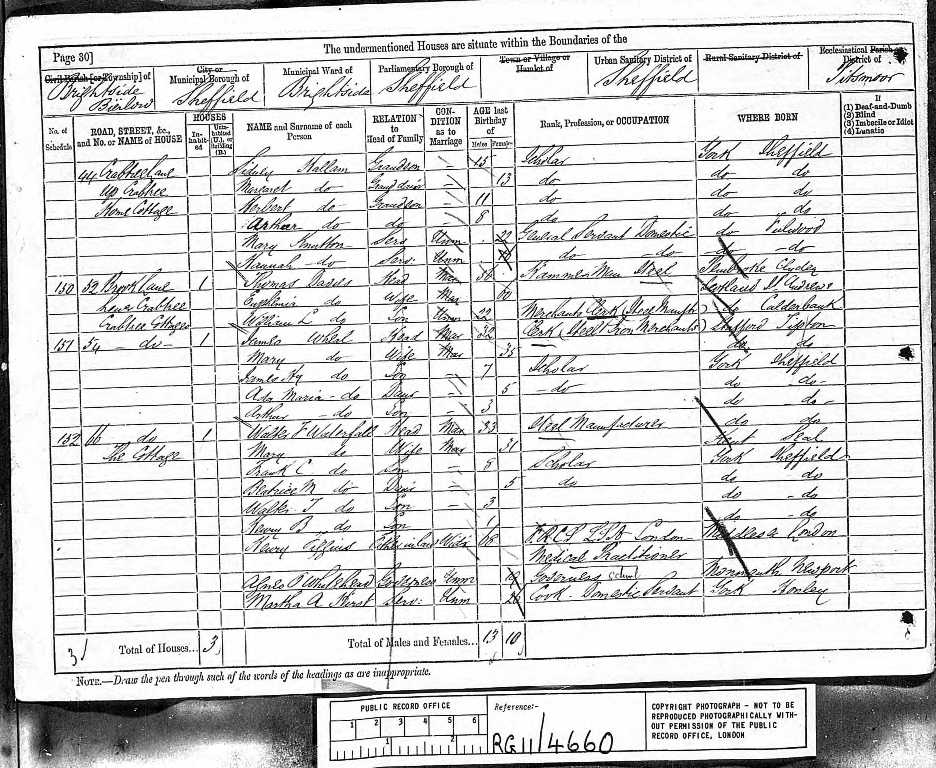 The undermentioned Houses are situate within the Boundaries of the
Page 30]
Civil Parish [or Township] of City or Municipal Borough of Municipal Ward of Parliamentary Borough of Town or Village or Hamlet of Urban Sanitary District of Rural Sanitary District of Ecclesiastical Parish or District of
Brightside Bierlow Sheffield Brightside Sheffield Sheffield Pitsmoor
No. of Schedule ROAD, STREET, &c., and No. or NAME of HOUSE HOUSES Inhabited Uninhabited (U.), or Building (B.) NAME and Surname of each Person RELATION to Head of Family CONDITION as to Marriage AGE last Birthday of Males Females Rank, Profession, or OCCUPATION WHERE BORN If (1) Deaf-and-Dumb (2) Blind (3) Imbecile or Idiot (4) Lunatic
44 Crabtree Lane Sidney Hallam Grandson — 15 Scholar York Sheffield
Up Crabtree Margaret do — 13 do do do
Home Cottage Herbert do Grandson — 11 do do do
Arthur do do — 8 do do do
Mary Serv Unm 22 General Servant Domestic do Fulwood
Hannah do Serv Unm do do do do
150 52 Brook Lane 1 Thomas Head Mar 56 Hammer Man Steel Pembroke
Lower Crabtree do Wife Mar 60 Scotland St Andrews
Crabtree Cottages William L do Son Unm 22 Merchants Clerk do Calderbank
151 54 do 1 James Head Mar 32 Clerk Stafford Tipton
Mary do Wife Mar 35 do do
James Hy do Son — 7 Scholar York Sheffield
Ada Maria do Daur — 5 do do do
Arthur do Son — 3 do do
152 66 do 1 Walter F Waterfall Head Mar 33 Steel Manufacturer do do
The Cottage Mary do Wife Mar 31 Kent Deal
Frank C do Son — 5 Scholar York Sheffield
Beatrice M do Daur — 5 do do do
Walter T do Son — 3 do do
Henry B do Son — 1 do do
Henry Father in law Widr 68 F.R.C.S. L.S.A. London Middlesex London
Medical Practitioner
Agnes P Whitehead Governess Unm 19 Governess Monmouth Newport
Martha A Hirst Serv: Unm 26 Cook Domestic Servant York Honley
3 Total of Houses... 3 Total of Males and Females... 13 10
NOTE.—Draw the pen through such of the words of the headings as are inappropriate.
PUBLIC RECORD OFFICE
1 2 3 4 5 6
1 2
Reference:-
RG 11/4660
COPYRIGHT PHOTOGRAPH - NOT TO BE REPRODUCED PHOTOGRAPHICALLY WITHOUT PERMISSION OF THE PUBLIC RECORD OFFICE, LONDON